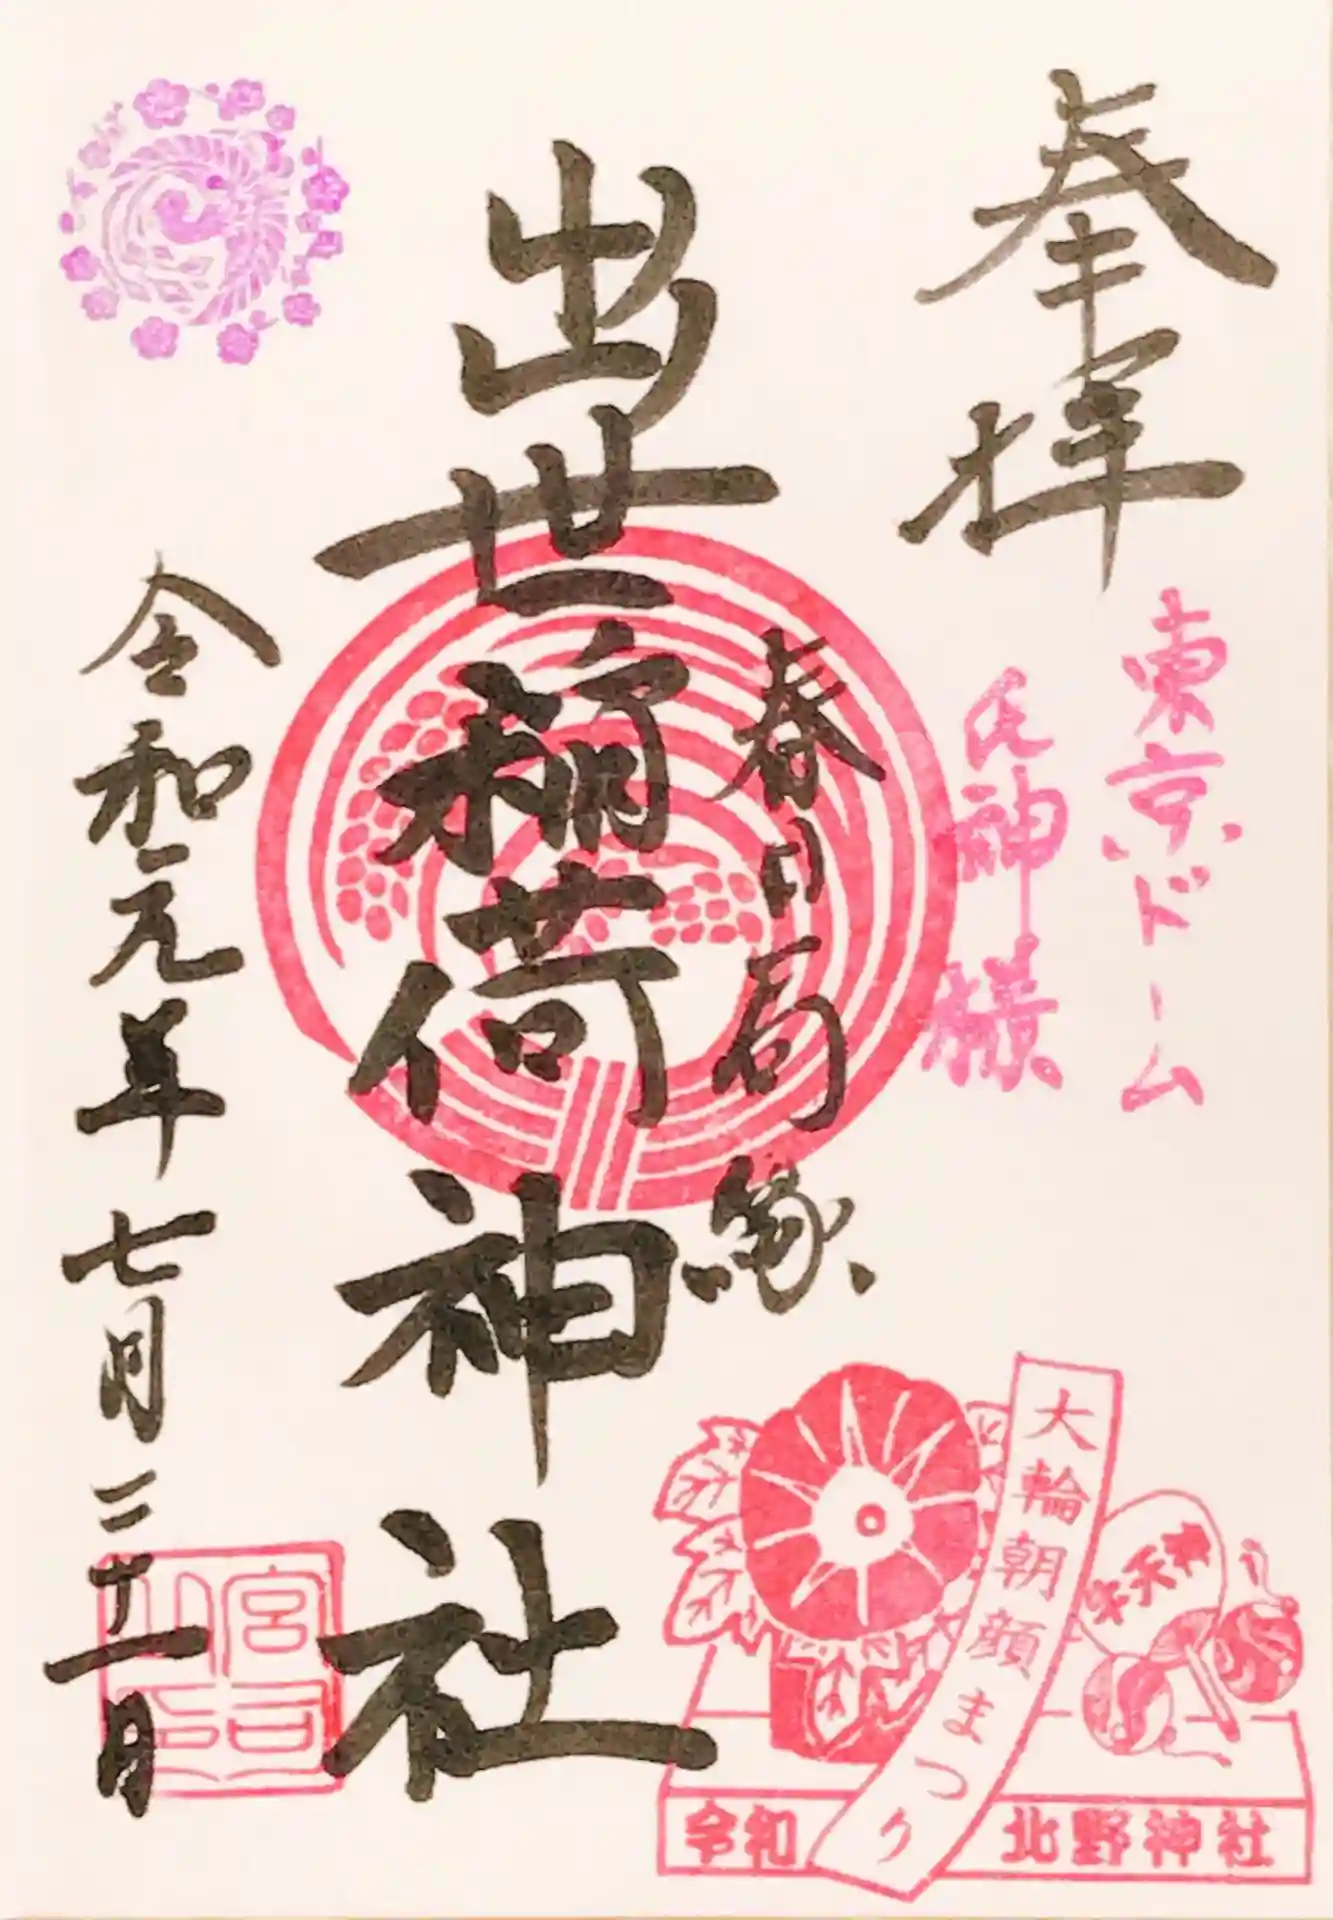 奉拝
東京ドーム
氏神様
春日局縁
出世稲荷神社
令和元年七月三十一日
大輪朝顔まつり
牛天神
令和
北野神社
宮司